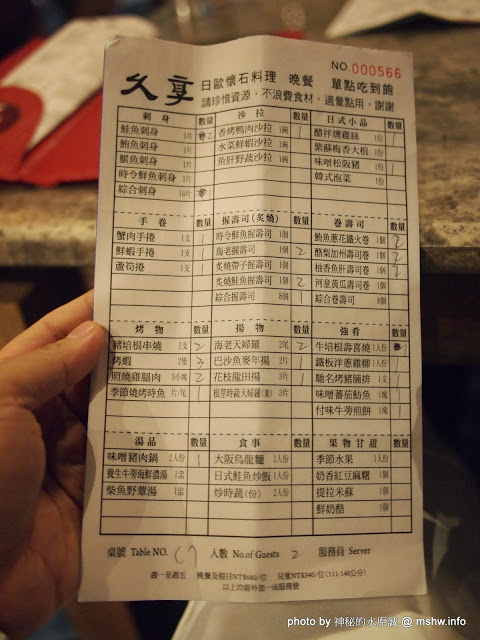 NO.000566
久享 日歐懷石料理 晚餐 單點吃到飽
請珍惜資源,不浪費食材,適量點用,謝謝
刺身 數量 沙拉 數量 日式小品 數量
鮭魚刺身 1片 2 香烤鴨肉沙拉 1碗 1 醋拌燻雞絲 1份 1
鮪魚刺身 1片 水菜鮮蝦沙拉 1碗 紫蘇梅香大根 1份
旗魚刺身 1片 魚肝野蔬沙拉 1碗 味噌松阪豬 1份 1
時令鮮魚刺身 1片 韓式泡菜 1份
綜合刺身 10片
手卷 數量 握壽司(炙燒) 數量 卷壽司 數量
蟹肉手捲 1支 1 時令鮮魚握壽司 1個 鮪魚蔥花鐵火卷 1個 2
鮮蝦手捲 1支 海老握壽司 1個 2 酪梨加州壽司卷 1個 2
蘆筍捲 1支 炙燒帶子握壽司 1個 柚香魚肝壽司卷 1個 2
炙燒鮭魚握壽司 1個 2 河童黃瓜壽司卷 1個
綜合握壽司 8個 1 綜合卷壽司 8個
烤物 數量 揚物 數量 強肴 數量
豬培根串燒 1支 2 海老天婦羅 2尾 2 牛培根壽喜燒 1人份 1
烤蝦 2隻 3 巴沙魚麥年揚 2片 1 鐵板洋蔥雞柳 1人份 1
照燒雞腿肉 3小塊 2 花枝龍田揚 3片 1 馳名烤豬腩排 1支 1
季節燒烤時魚 片/尾 根莖時蔬天婦羅(素) 3片 味噌蕃茄魴魚 1塊 1
付味牛蒡煎餅 1塊 1
湯品 數量 食事 數量 果物甘甜 數量
味噌豬肉鍋 2人份 1 大阪烏龍麵 2人份 季節水果 1人份
養生牛蒡海鮮濃湯 1盅 日式鮭魚炒飯 1人份 奶香紅豆麻糬 1個
柴魚野蕈湯 1盅 炒時蔬(份) 2人份 提拉米蘇 1個
鮮奶酪 1個
桌號 Table NO. C7 人數 No.of Guests 2 服務員 Server
週一至週五 晚餐及假日NT$680/位 兒童NT$340/位(111-140公分)
以上均需外加一成服務費
photo by 神秘的水原誠 @ mshw.info